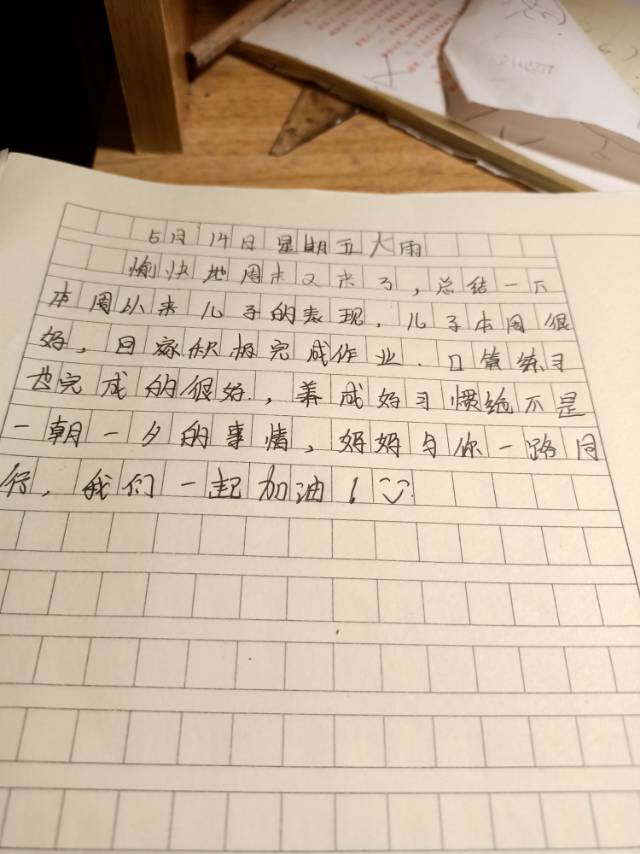 5月14日星期五大雨
愉快地周末又来了,总结一下
本周以来儿子的表现,儿子本周很
好,回家积极完成作业.口算练习
也完成的很好,养成好习惯绝不是
一朝一夕的事情,妈妈与你一路同
行,我们一起加油!